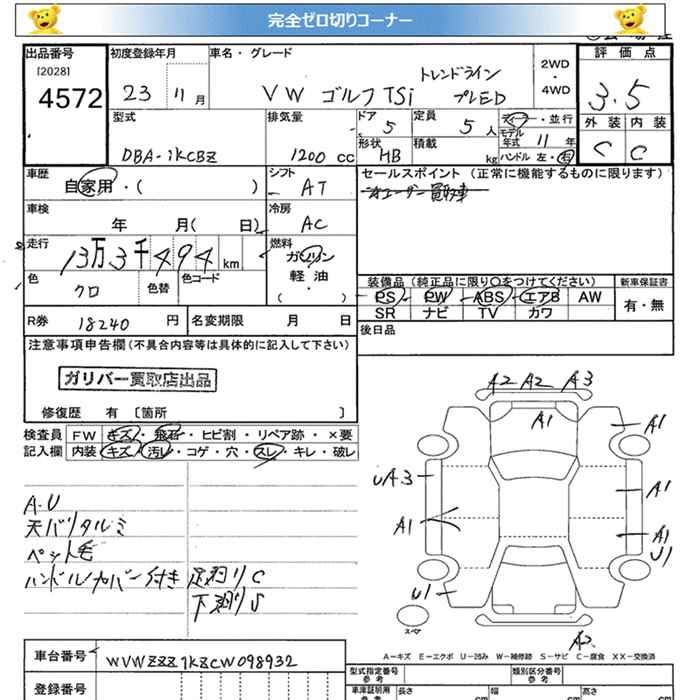 完全ゼロ切りコーナー
出品番号 初度登録年月 車名・グレード 評価点
[2028]
4572 23 11月 VW ゴルフTSi トレンドライン プレED 2WD・4WD 3.5
外装 内装
C C
型式 排気量 ドア 5 定員 5人 ディーラー・並行
DBA-1KCBZ 1200cc 形状 HB 積載 kg モデル年式 11年
ハンドル 左・右
車歴 シフト セールスポイント (正常に機能するものに限ります)
自家用・( ) AT
車検 冷房
年 月( 日) AC
走行 燃料
13万3千494km ガソリン
軽油
( )
色 色替 色コード
クロ
装備品(純正品に限り〇をつけてください) 新車保証書
PS PW ABS エアB AW 有・無
SR ナビ TV カワ
R券 18240円 名変期限 月 日
後日品
注意事項申告欄(不具合内容等は具体的に記入して下さい)
ガリバー買取店出品
修復歴 有 [箇所 ]
検査員 FW キズ・飛石・ヒビ割・リペア跡・×要
記入欄 内装 キズ・汚レ・コゲ・穴・スレ・キレ・破レ
A2 A2 A3
A1 A1
UA3 A1
A1 A1
U1
U1
A2
A.U
天バリタルミ
ペット毛
ハンドルカバー付き 足廻りC
下廻りS
スペア
A-キズ E-エクボ U-凹み W-補修跡 S-サビ C-腐食 XX-交換済
車台番号 WVWZZZ1KZCW098932
登録番号
型式指定番号 参考 類別区分番号 参考
車庫証明用 参考 長さ cm 幅 cm 高さ cm